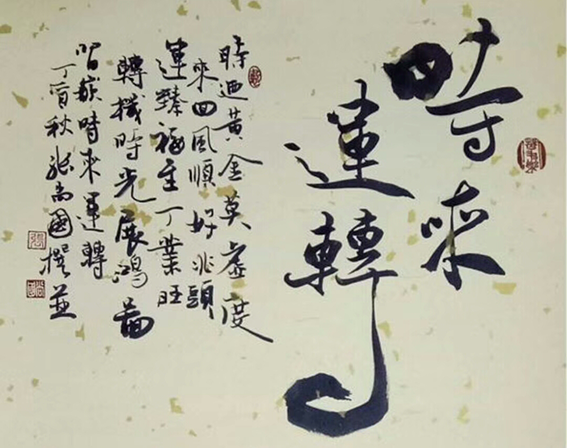 時來
運轉
時迺黃金莫虛度
來回風順好兆頭
運臻福至丁業旺
轉機時光展鴻圖
嵌時來運轉
丁酉秋張尚國撰並